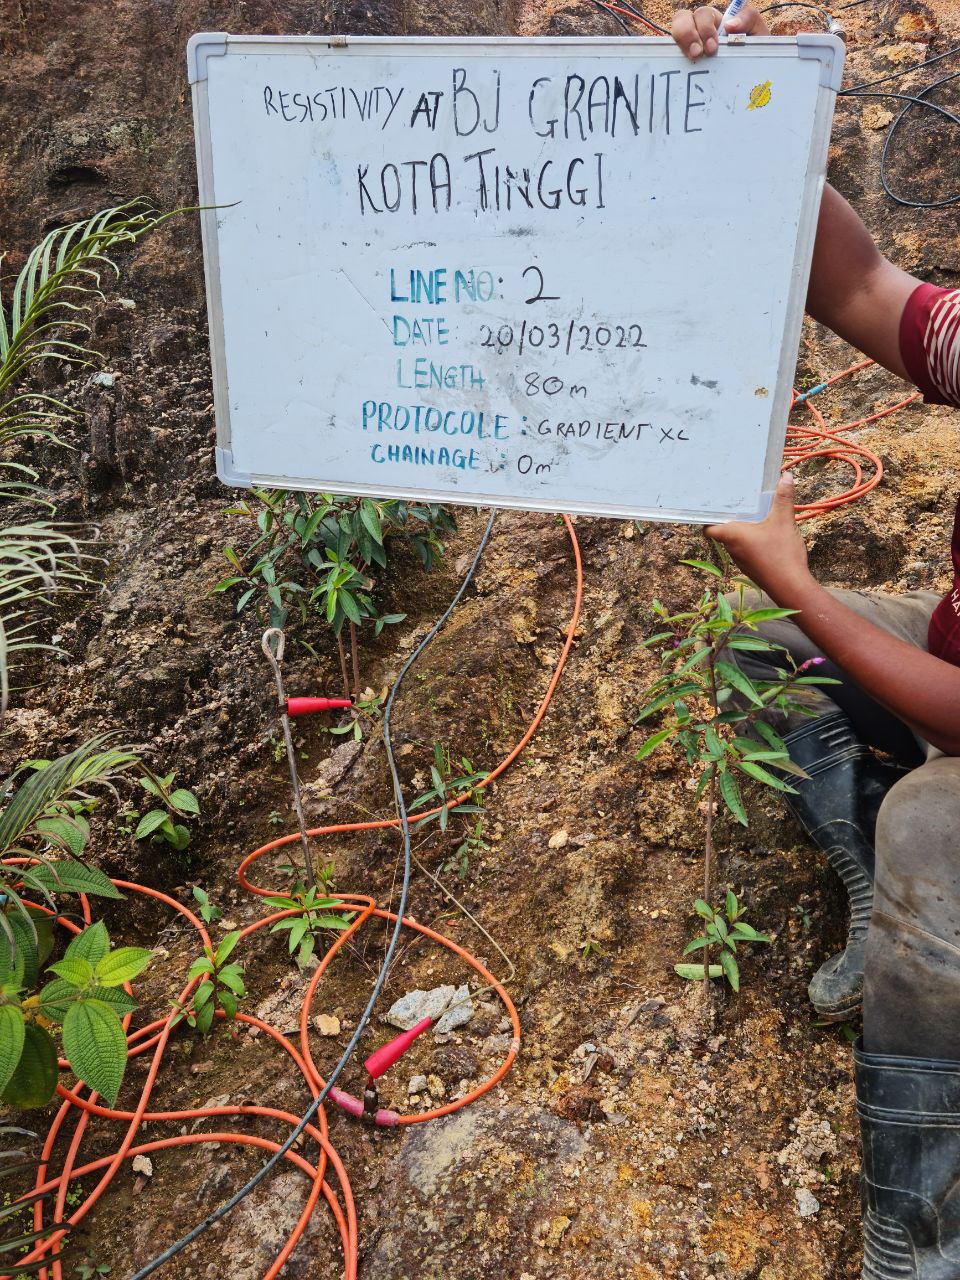 RESISTIVITY AT BJ GRANITE
KOTA TINGGI
LINE NO: 2
DATE: 20/03/2022
LENGTH: 80m
PROTOCOLE: GRADIENT XL
CHAINAGE: 0m